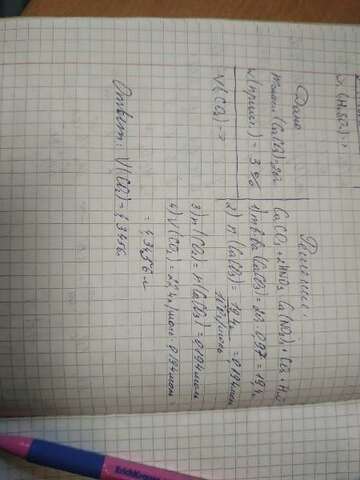 Дано:
m смеси (CaCO₃) = 20г
W(примес.) = 3%
V(CO₂) - ?
Решение:
CaCO₃ + 2HNO₃ Ca(NO₃)₂ + CO₂ + H₂O
1) m в-ва (CaCO₃) = 20 · 0,97 = 19,4г
2) n (CaCO₃) = 19,4г = 0,194моль
100г/моль
3) n (CO₂) = n (CaCO₃) = 0,194моль
4) V(CO₂) = 22,4л/моль · 0,194моль
= 4,3456 л
Ответ: V(CO₂) = 4,3456
ErichKrause